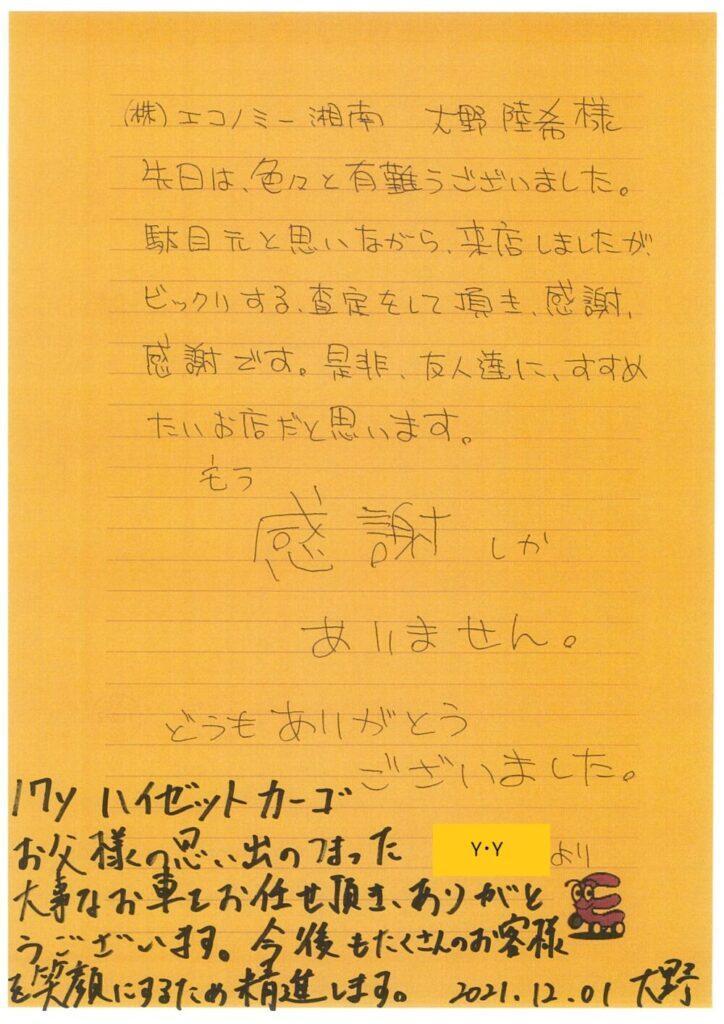 (株)エコノミー湘南 大野陸希様
先日は、色々と有難うございました。
駄目元と思いながら、来店しましたが、
ビックリする、査定をして頂き、感謝、
感謝です。是非、友人達に、すすめ
たいお店だと思います。
もう
感謝しか
ありません。
どうもありがとう
ございました。
Y・Yより
17y ハイゼットカーゴ
お父様の思い出のつまった
大事なお車をお任せ頂き、ありがと
うございます。今後もたくさんのお客様
を笑顔にするため精進します。 2021.12.01 大野